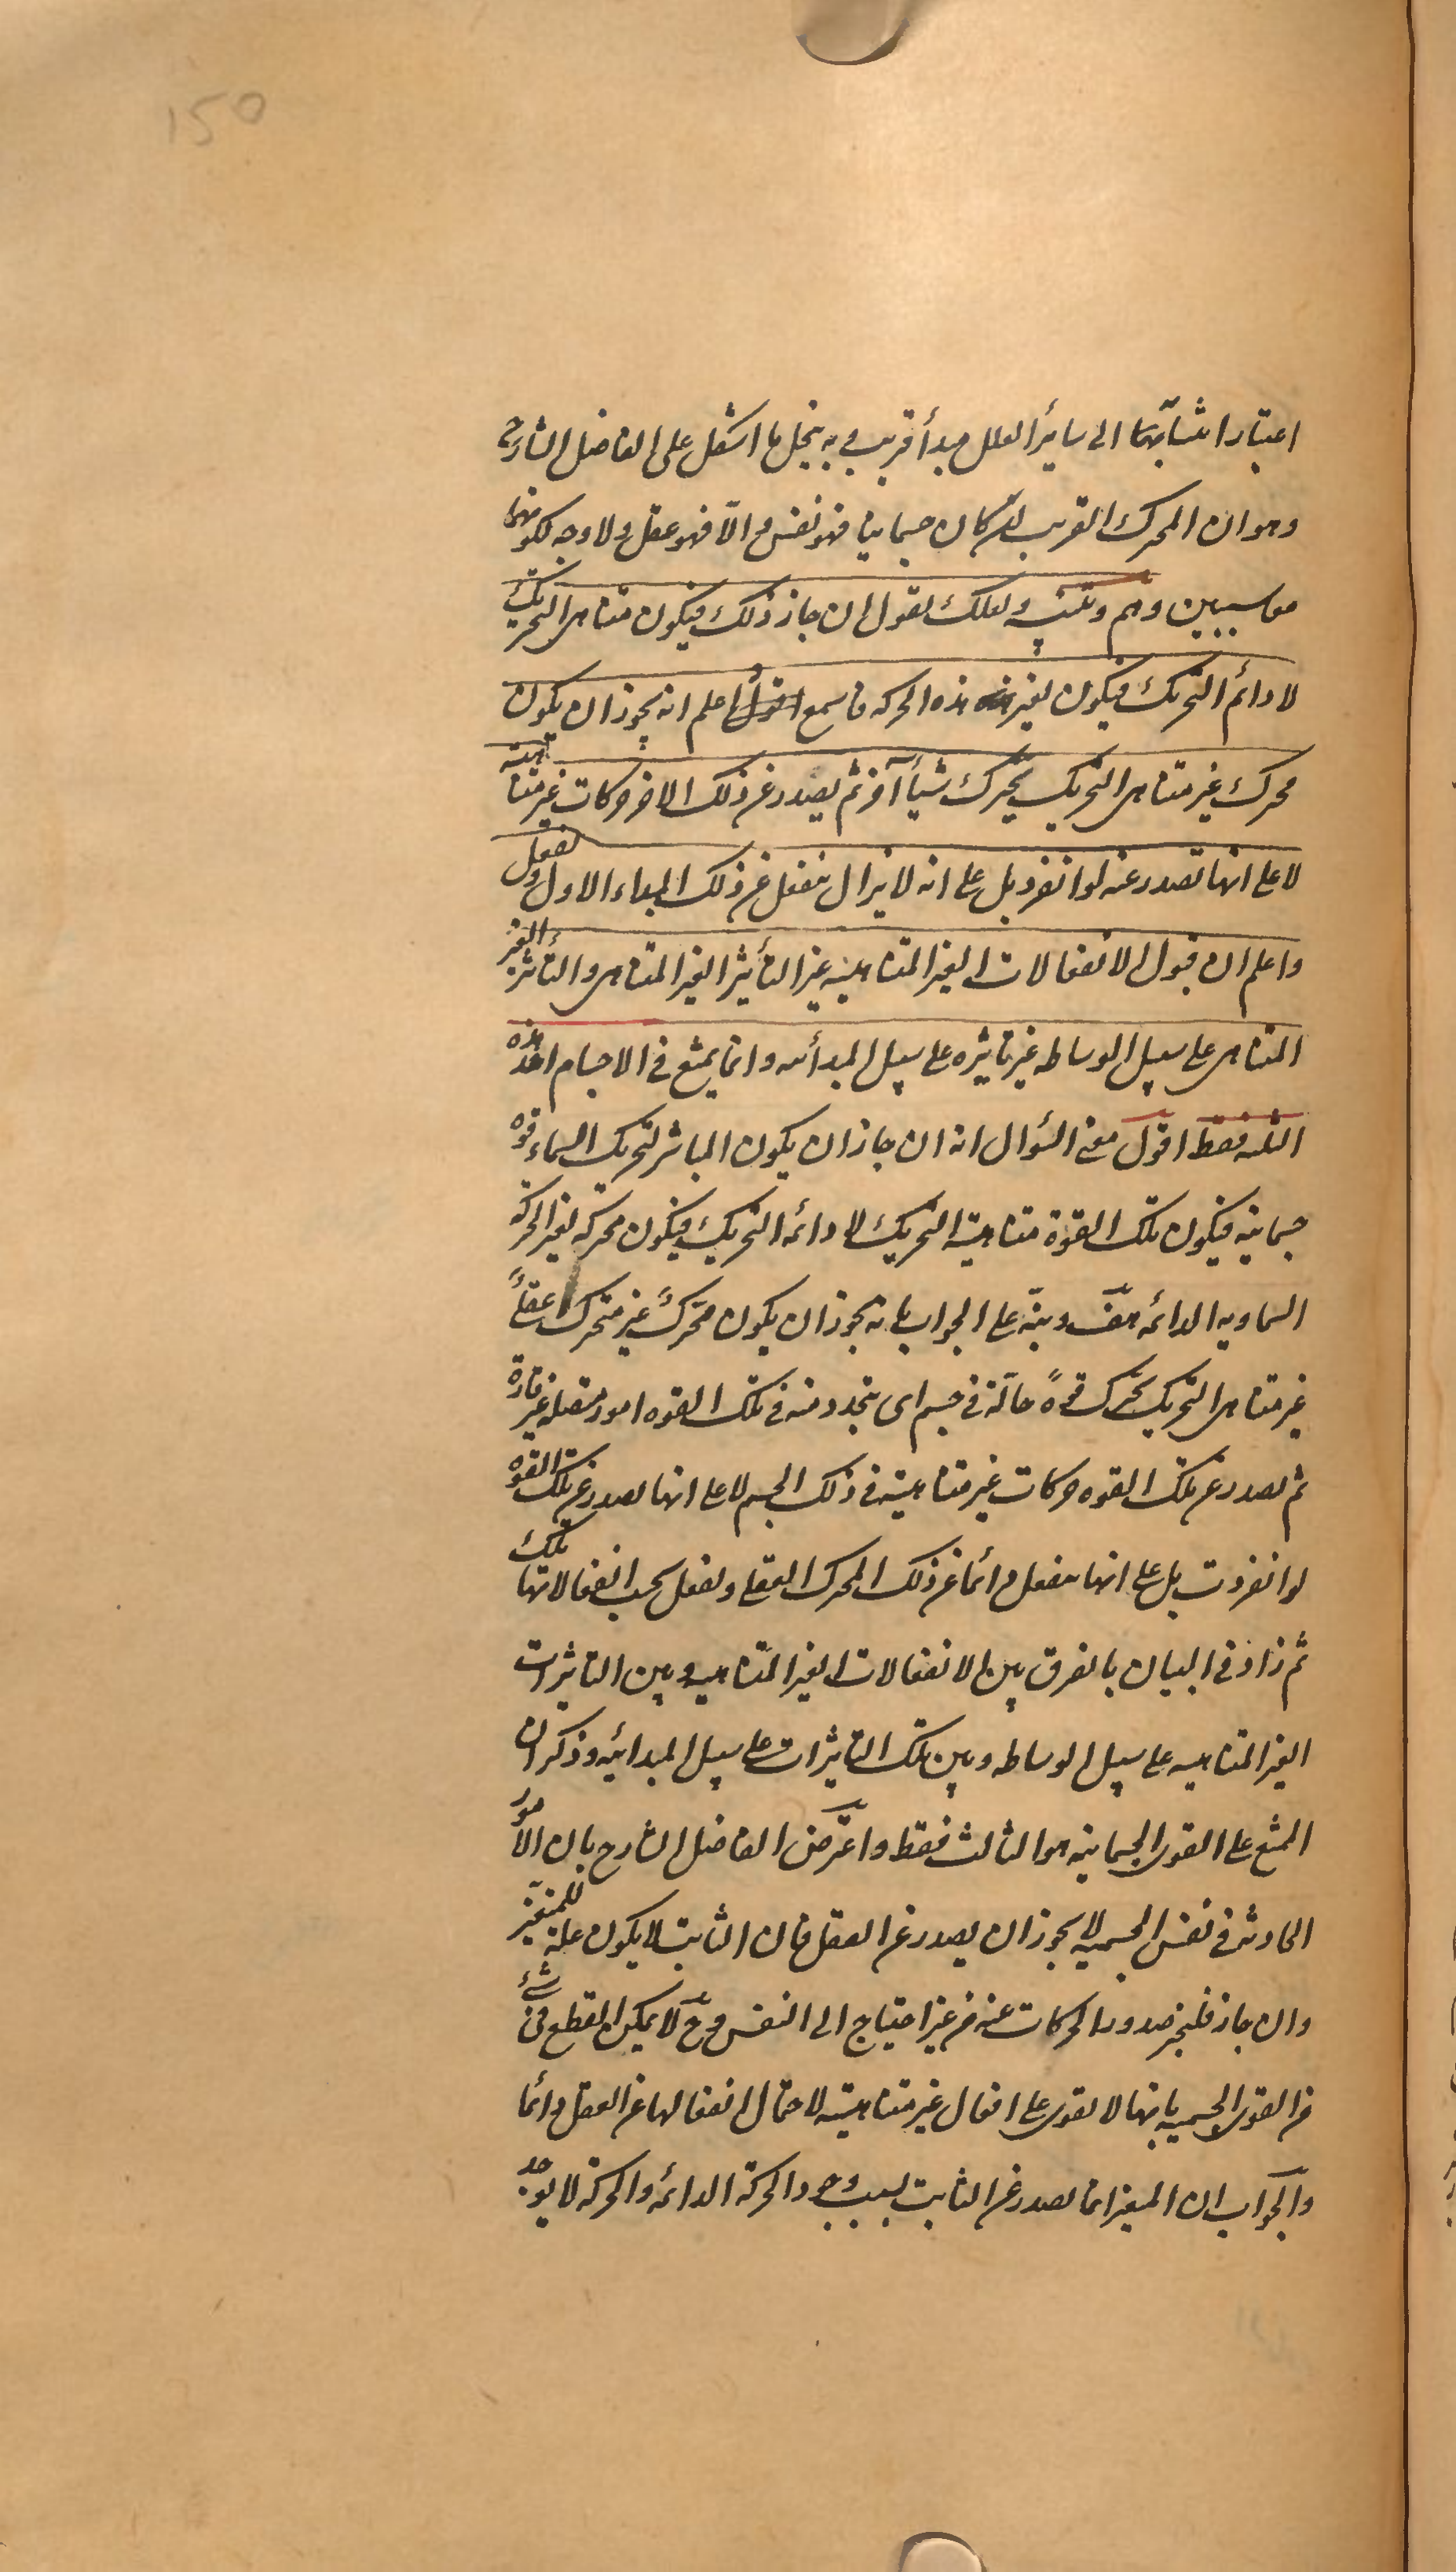 150
اعتبار انتسابهما الى سائر العلل مبدأ قريب و به ينحل ما اشكل على الفاضل الشارح
وهو ان المحرك القريب ان كان جسمانيا فهو نفس و الّا فهو عقل ولا وجه لكونهما
معا سببين وهم وتنبيه ولعلك تقول ان جاز ذلك فيكون متناهى التحريك
لا دائم التحريك فيكون لغير هذه الحركه فاسمع واعلم انه يجوز ان يكون
محرك غير متناهى التحريك يحرك شيأ آخر ثم يصدر عن ذلك الاخر حركات غير متناهية
لا على انها تصدر عنه لو انفرد بل على انه لا يزال ينفعل عن ذلك المبداء الاول ويفعل
واعلم ان قبول الانفعالات الغير المتناهيه غير التأثير الغير المتناهى والتأثير الغير
المتناهى على سبيل الوساطه غير تاثيره على سبيل المبدأيه وانما يمتنع فى الاجسام احد هذه
الثلثه فقط اقول معنى السؤال انه ان جاز ان يكون المباشر لتحريك السماء قوه
جسمانيه فيكون تلك القوة متناهية التحريك لا دائمه التحريك فيكون محركه لغير الحركة
السماويه الدائمه هف ونبّه على الجواب بانه يجوز ان يكون محرّكٌ غير متحرك عقلىٌ
غير متناهى التحريك يحرك قوةً حالّة فى جسم اى يتجدد منه فى تلك القوه امور متصله غير قارة
ثم يصدر عن تلك القوه حركات غير متناهيه فى ذلك الجسم لا على انها تصدر عن تلك القوه
لو انفردت بل على انها تنفعل دائما عن ذلك المحرك العقلى وتفعل بحسب انفعالاتها تلك
ثم زاد فى البيان بالفرق بين الانفعالات الغير المتناهيه وبين التاثيرات
الغير المتناهيه على سبيل الوساطه وبين تلك التاثيرات على سبيل المبدائيه وذكر ان
الممتنع على القوى الجسمانيه هو الثالث فقط واعترض الفاضل الشارح بان الامور
الحادثه فى نفس الجسميه لا يجوز ان يصدر عن العقل فان الثابت لا يكون علة للمتغير
وان جاز فليجز صدور الحركات عنه من غير احتياج الى النفس وح لا يمكن القطع فى شئ
من القوى الجسميه بانها لا تقوى على افعال غير متناهيه لاحتمال انفعالها عن العقل دائما
والجواب ان المتغير انما يصدر عن الثابت بسبب وجود الحركة الدائمه والحركة لا يوجد